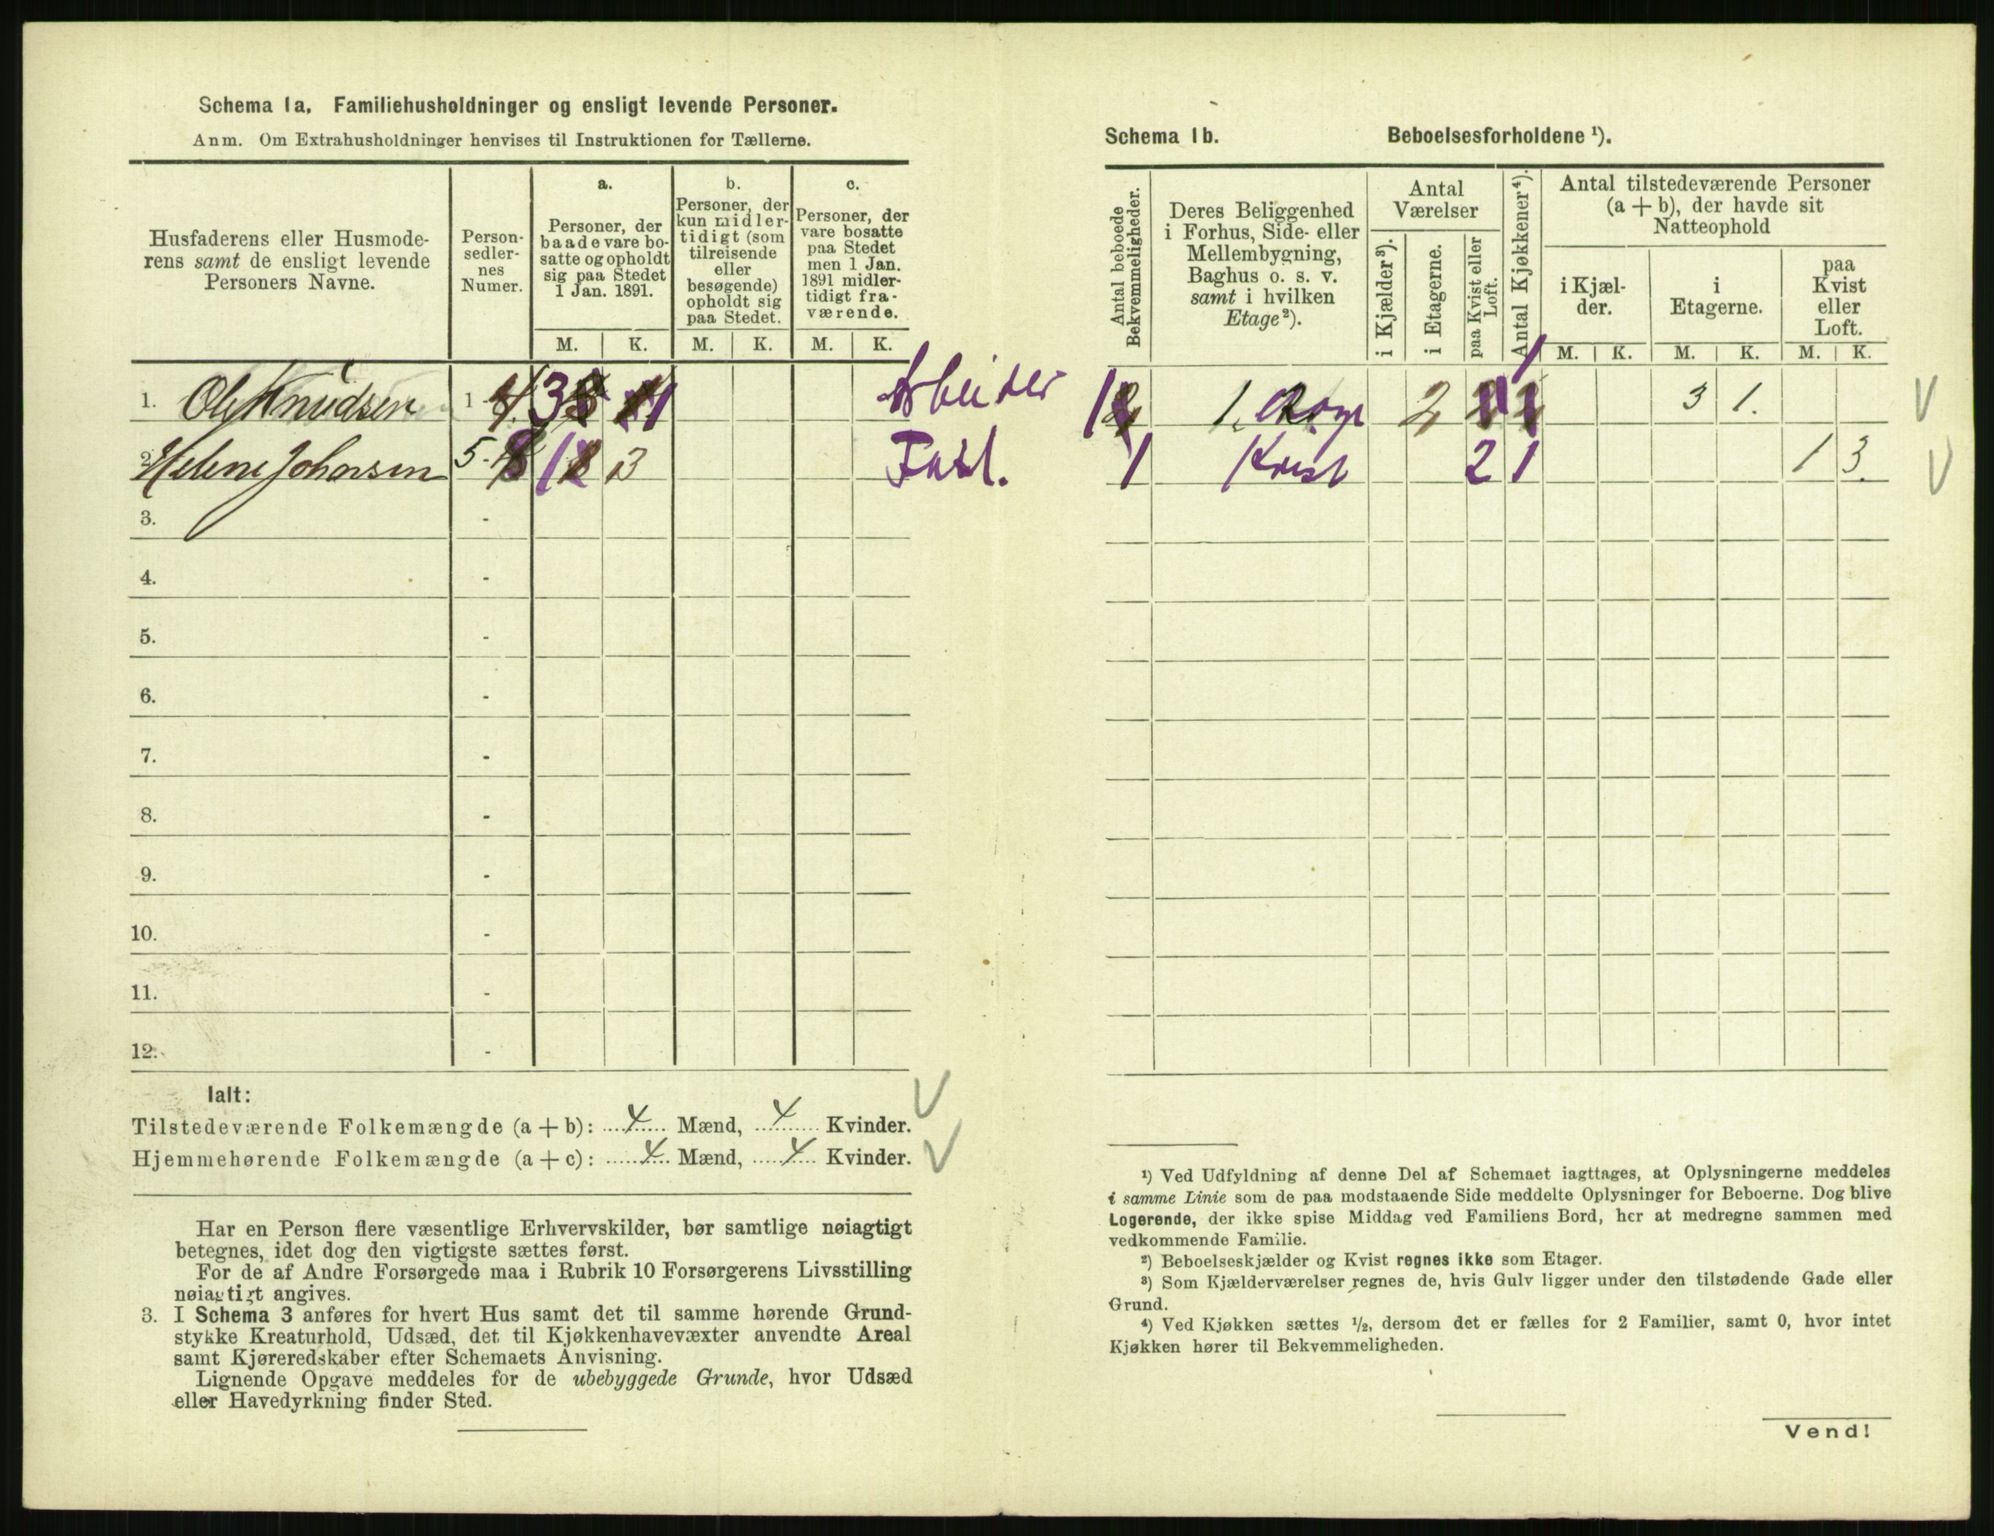 Schema 1a. Familiehusholdninger og ensligt levende Personer.
Anm. Om Extrahusholdninger henvises til Instruktionen for Tællerne.
Husfaderens eller Husmode-
rens samt de ensligt levende
Personers Navne.
Person-
sedler-
nes
Numer.
a.
Personer, der
baade vare bo-
satte og opholdt
sig paa Stedet
1 Jan. 1891.
b.
Personer, der
kun midler-
tidigt (som
tilreisende
eller
besøgende)
opholdt sig
paa Stedet.
c.
Personer, der
vare bosatte
paa Stedet
men 1 Jan.
1891 midler-
tidigt fra-
værende.
M. K. M. K. M. K.
1. Ole Knudsen 1 - 4. 3 1 Arbeider
2. Helene Johansen 5 - 8 1 3 Fatt.
3. -
4. -
5. -
6. -
7. -
8. -
9. -
10. -
11. -
12. -
Ialt:
Tilstedeværende Folkemængde (a + b): 4 Mænd, 4 Kvinder.
Hjemmehørende Folkemængde (a + c): 4 Mænd, 4 Kvinder.
Har en Person flere væsentlige Erhvervskilder, bør samtlige nøiagtigt
betegnes, idet dog den vigtigste sættes først.
For de af Andre Forsørgede maa i Rubrik 10 Forsørgerens Livsstilling
nøiagtigt angives.
3. I Schema 3 anføres for hvert Hus samt det til samme hørende Grund-
stykke Kreaturhold, Udsæd, det til Kjøkkenhavevæxter anvendte Areal
samt Kjøreredskaber efter Schemaets Anvisning.
Lignende Opgave meddeles for de ubebyggede Grunde, hvor Udsæd
eller Havedyrkning finder Sted.
Schema 1b. Beboelsesforholdene ¹).
Antal beboede
Bekvemmeligheder.
Deres Beliggenhed
i Forhus, Side- eller
Mellembygning,
Baghus o. s. v.
samt i hvilken
Etage²).
Antal
Værelser
i Kjælder³).
i Etagerne.
paa Kvist eller
Loft.
Antal Kjøkkener⁴).
Antal tilstedeværende Personer
(a + b), der havde sit
Natteophold
i Kjæl-
der.
i
Etagerne.
paa
Kvist
eller
Loft.
M. K. M. K. M. K.
1 1. 2 1 3 1.
1 Kvist 2 1 1 3.
¹) Ved Udfyldning af denne Del af Schemaet iagttages, at Oplysningerne meddeles
i samme Linie som de paa modstaaende Side meddelte Oplysninger for Beboerne. Dog blive
Logerende, der ikke spise Middag ved Familiens Bord, her at medregne sammen med
vedkommende Familie.
²) Beboelseskjælder og Kvist regnes ikke som Etager.
³) Som Kjælderværelser regnes de, hvis Gulv ligger under den tilstødende Gade eller
Grund.
⁴) Ved Kjøkken sættes ½, dersom det er fælles for 2 Familier, samt 0, hvor intet
Kjøkken hører til Bekvemmeligheden.
Vend!